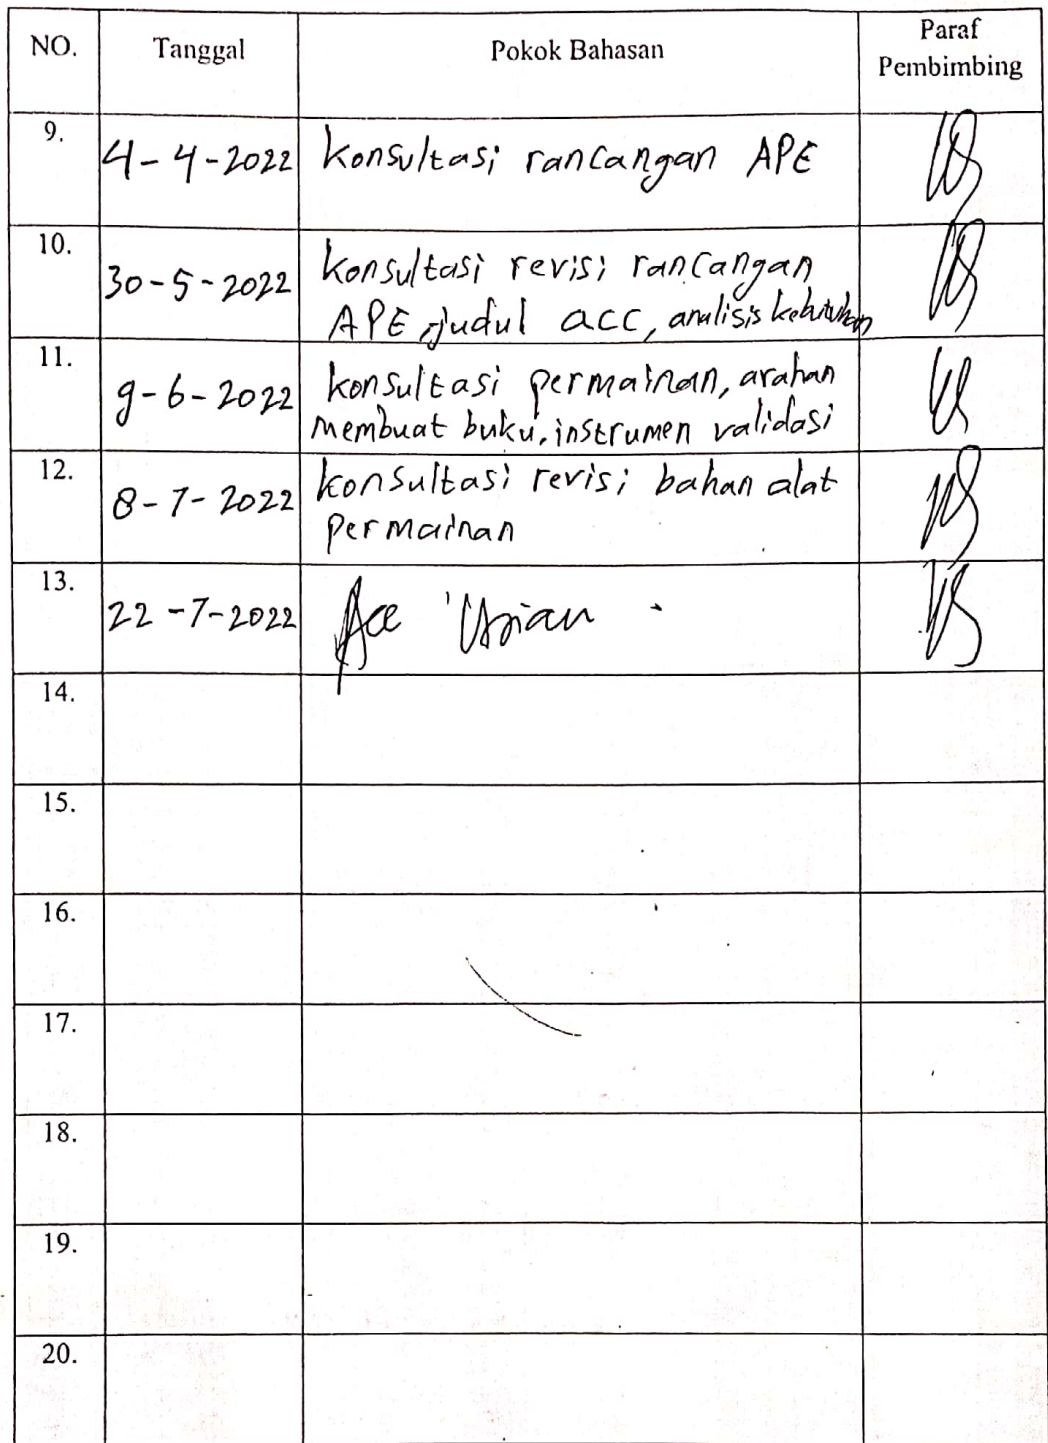 NO. Tanggal Pokok Bahasan Paraf
Pembimbing
9. 4-4-2022 konsultasi rancangan APE
10. 30-5-2022 konsultasi revisi rancangan
APE, judul acc, analisis kebutuhan
11. 9-6-2022 konsultasi permainan, arahan
membuat buku, instrumen validasi
12. 8-7-2022 konsultasi revisi bahan alat
permainan
13. 22-7-2022 Acc Ujian
14.
15.
16.
17.
18.
19.
20.